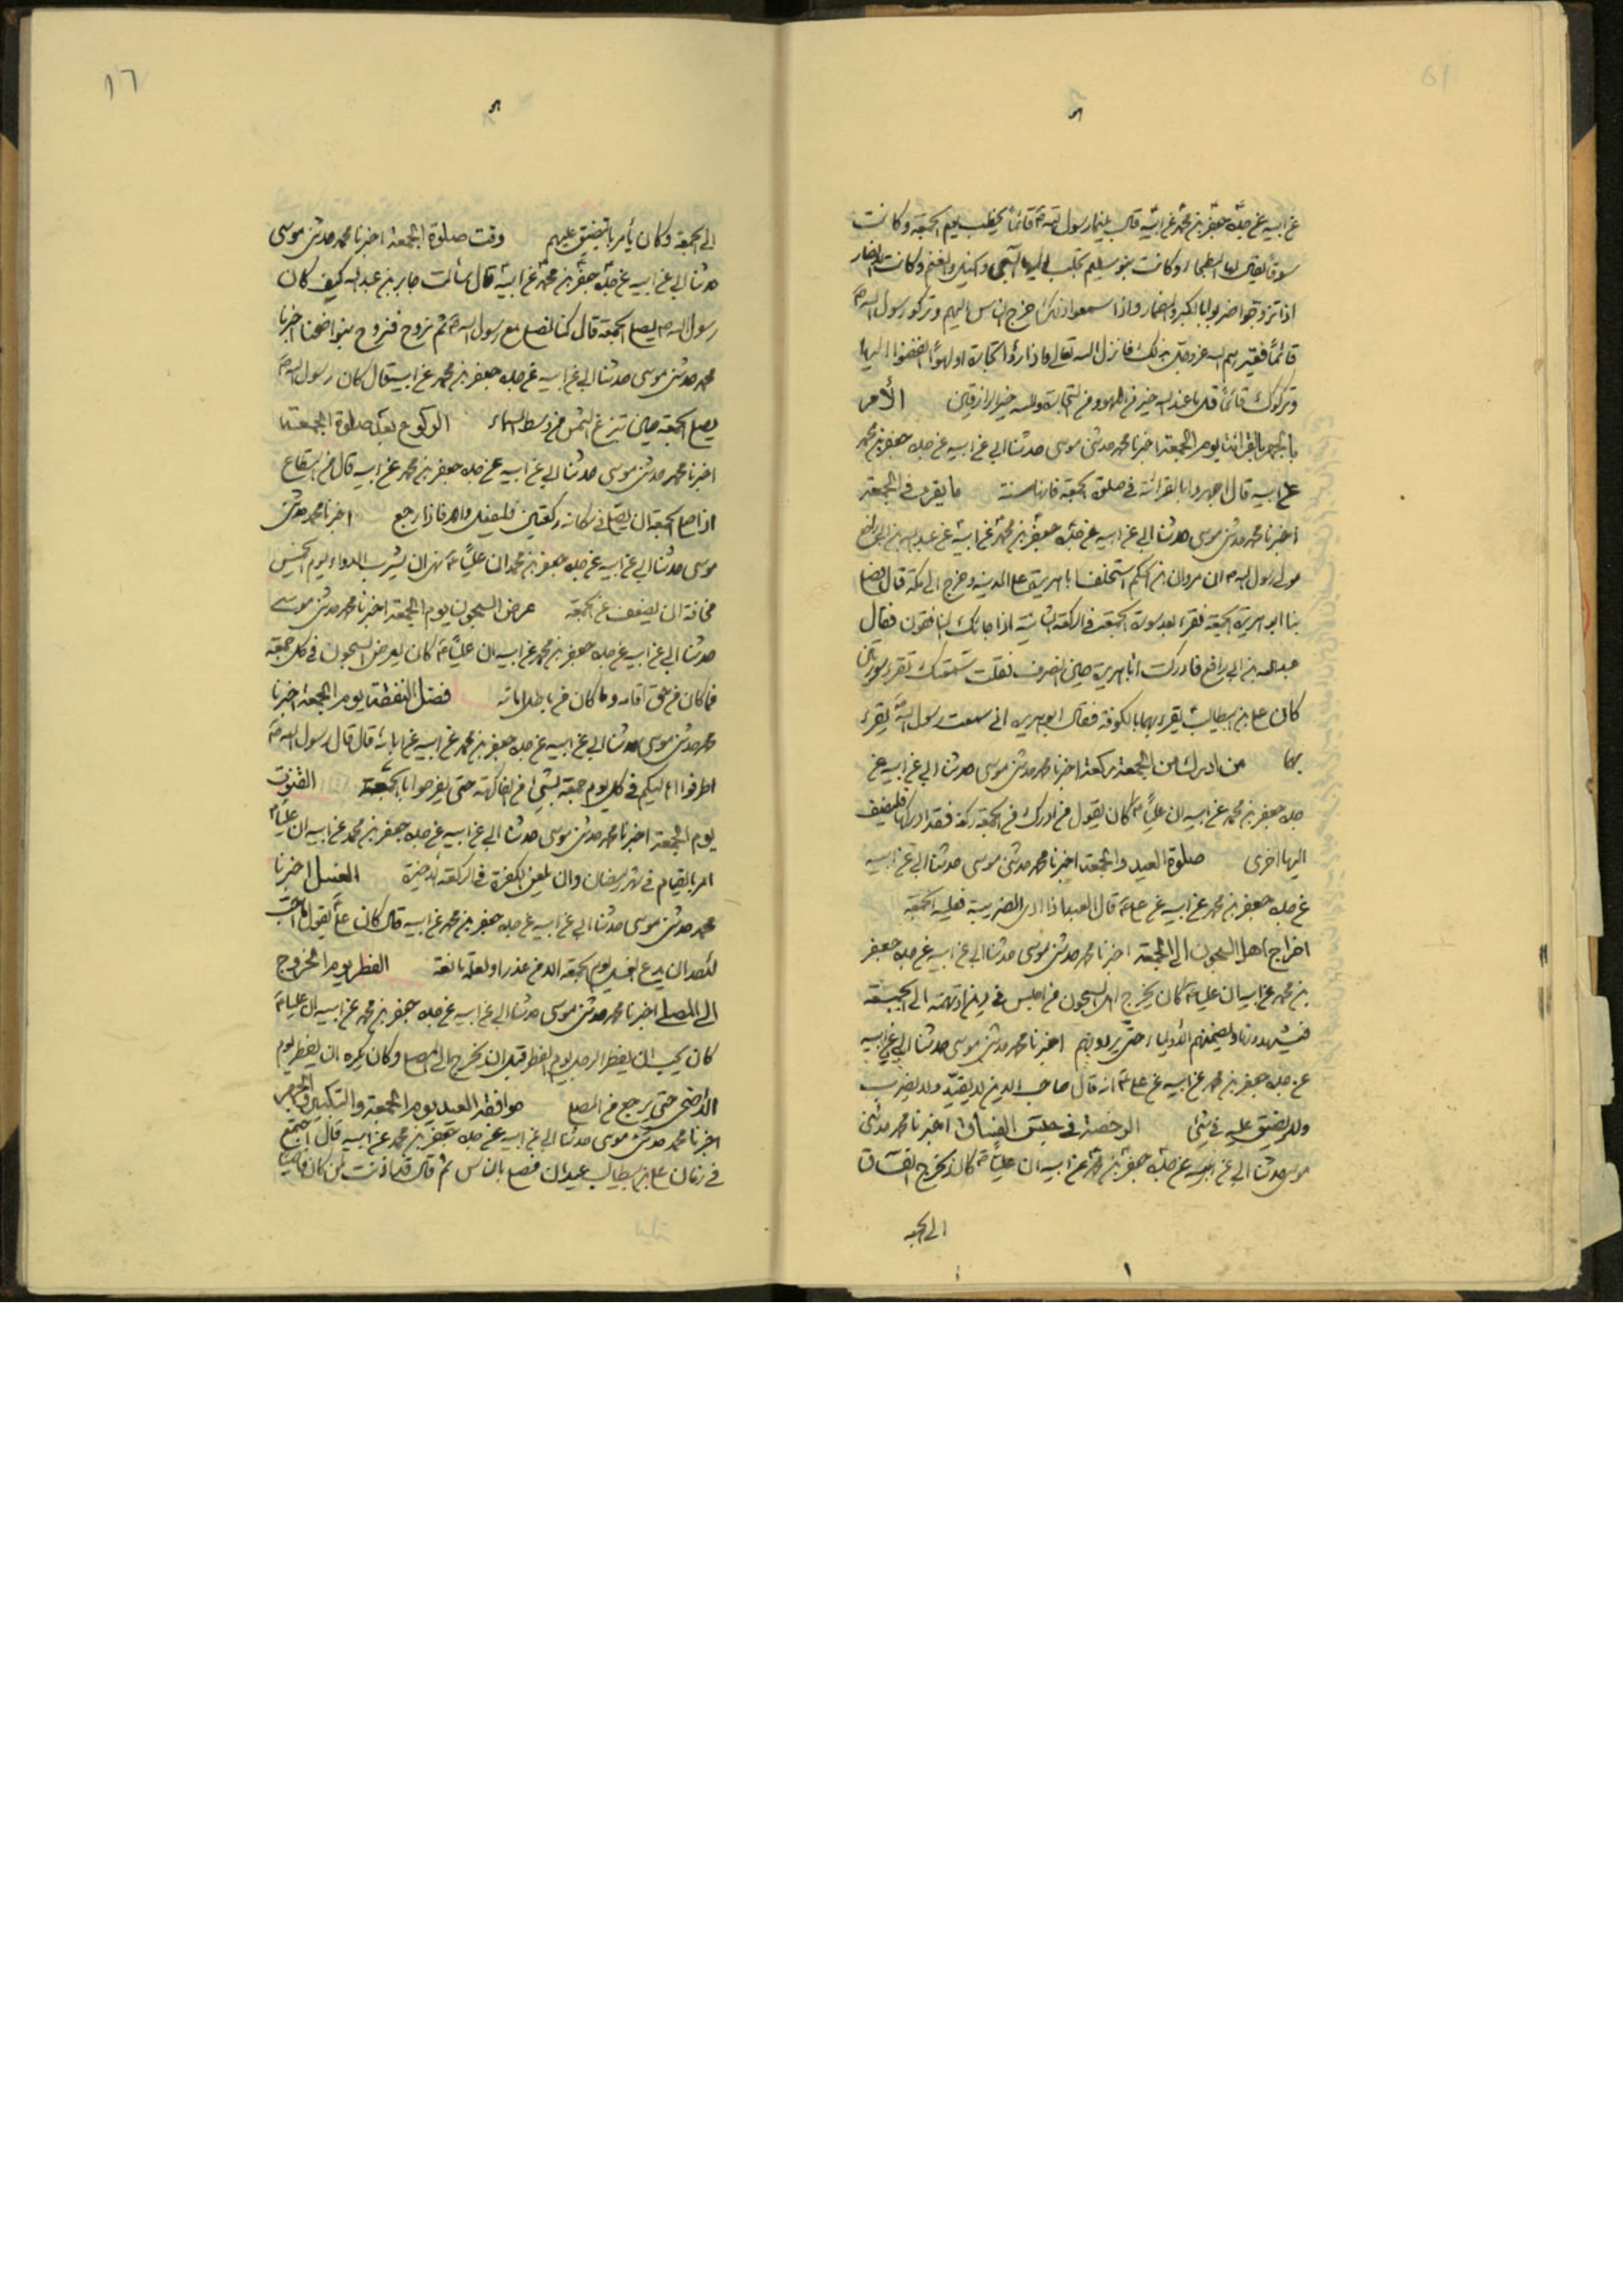 عن ابيه عن جده جعفر بن محمد عن ابيه قال بينما رسول الله ص قائما يخطب يوم الجمعة وكانت
سوقا يقال لها البطحاء وكانت بنو سليم تجلب اليها السبى والخيل والغنم وكانت الانصار
اذا تزوجوا ضربوا بالكبر والمزمار واذا سمعوا ذلك خرج الناس اليهم وتركوا رسول الله ص
قائما فعيرهم الله عز وجل بذلك فانزل الله تعالى واذا رأوا تجارة او لهوا انفضوا اليها
وتركوك قائما قل ما عند الله خير من اللهو ومن التجارة والله خير الرازقين الأمر
بالجهر بالقرائة يوم الجمعة اخبرنا محمد حدثنى موسى حدثنا ابي عن ابيه عن جده جعفر بن محمد
عن ابيه قال اجهروا بالقرائة في صلوة الجمعة فانها سنة ما يقرء في الجمعة
اخبرنا محمد حدثنى موسى حدثنا ابي عن ابيه عن جده جعفر بن محمد عن ابيه عن عبد الله بن ابي رافع
مولى رسول الله ص ان مروان بن الحكم استخلف ابا هريرة على المدينة وخرج الى مكة قال فصلى
بنا ابو هريرة الجمعة فقرء بعد سورة الجمعة في الركعة الثانية اذا جائك المنافقون فقال
عبد الله بن ابي رافع فادركت ابا هريرة حين انصرف فقلت سمعتك تقرء سورتين
كان على بن ابيطالب يقرء بهما بالكوفة فقال ابو هريرة انى سمعت رسول الله ص يقرء
بهما من ادرك من الجمعة ركعة اخبرنا محمد حدثنى موسى حدثنا ابي عن ابيه عن
جده جعفر بن محمد عن ابيه ان عليا ع كان يقول من ادرك من الجمعة ركعة فقد ادركها فليضف
اليها اخرى صلوة العبد والجمعة اخبرنا محمد حدثنى موسى حدثنا ابي عن ابيه
عن جده جعفر بن محمد عن ابيه عن على ع قال العبد اذا ادى الضريبة فعليه الجمعة
اخراج اهل السجون الى الجمعة اخبرنا محمد حدثنى موسى حدثنا ابي عن ابيه عن جده جعفر
بن محمد عن ابيه ان عليا ع كان يخرج اهل السجون من احبس في دين او تهمة الى الجمعة
فيشهدونها ويضمنهم الأولياء حتى يردونهم اخبرنا محمد حدثنى موسى حدثنا ابي عن ابيه
عن جده جعفر بن محمد عن ابيه عن على ع انه قال صاحب الدين لا يقيد ولا يضرب
ولا يضيق عليه في شئ الرخصة في حبس الفساق اخبرنا محمد حدثنى
موسى حدثنا ابي عن ابيه عن جده جعفر بن محمد عن ابيه ان عليا ع كان يخرج الفساق
الى الجمعة
١٦
الى الجمعة وكان يأمر بالتضيق عليهم وقت صلوة الجمعة اخبرنا محمد حدثنى موسى
حدثنا ابي عن ابيه عن جده جعفر بن محمد عن ابيه قال سألت جابر بن عبد الله كيف كان
رسول الله ص يصلى الجمعة قال كنا نصلى مع رسول الله ص ثم نروح فنروح بنواضحنا اخبرنا
محمد حدثنى موسى حدثنا ابي عن ابيه عن جده جعفر بن محمد عن ابيه قال كان رسول الله ص
يصلى الجمعة حين تزيغ الشمس من وسط السماء الركوع بعد صلوة الجمعة
اخبرنا محمد حدثنى موسى حدثنا ابي عن ابيه عن جده جعفر بن محمد عن ابيه قال من استطاع
اذا صلى الجمعة ان يصلى في مكانه ركعتين فليفعل والا فاذا رجع اخبرنا محمد حدثنى
موسى حدثنا ابي عن ابيه عن جده جعفر بن محمد ان عليا ع نهى ان يشرب الدواء يوم الخميس
مخافة ان يضعف عن الجمعة عرض السجون يوم الجمعة اخبرنا محمد حدثنى موسى
حدثنا ابي عن ابيه عن جده جعفر بن محمد عن ابيه ان عليا ع كان يعرض السجون في كل جمعة
فما كان من حق اقامه وما كان من باطل اماته فضل النفقة يوم الجمعة اخبرنا
محمد حدثنى موسى حدثنا ابي عن ابيه عن جده جعفر بن محمد عن ابيه عن ابائه قال قال رسول الله ص
اطرفوا اهاليكم في كل يوم جمعة بشئ من الفاكهة حتى يفرحوا بالجمعة القنوت
يوم الجمعة اخبرنا محمد حدثنى موسى حدثنا ابي عن ابيه عن جده جعفر بن محمد عن ابيه ان عليا ع
امر بالقيام في شهر رمضان وان يلعن الكفرة في الركعة الاخيرة الغسل اخبرنا
محمد حدثنى موسى حدثنا ابي عن ابيه عن جده جعفر بن محمد عن ابيه قال كان على ع يقول ما احب
لأحد ان يدع الغسل يوم الجمعة الا من عذر او لعلة مانعة الفطر يوم الخروج
الى المصلى اخبرنا محمد حدثنى موسى حدثنا ابي عن ابيه عن جده جعفر بن محمد عن ابيه ان عليا ع
كان يحب ان يفطر الرجل يوم الفطر قبل ان يخرج الى المصلى وكان يكره ان يفطر يوم
الأضحى حتى يرجع من المصلى موافقة العيد يوم الجمعة والتكبير
اخبرنا محمد حدثنى موسى حدثنا ابي عن ابيه عن جده جعفر بن محمد عن ابيه قال اجتمع
في زمان على بن ابيطالب عيدان فصلى بالناس ثم قال قد اذنت لمن كان قاصيا